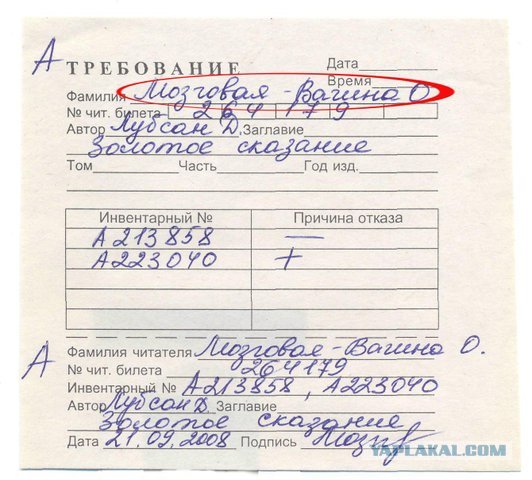 А
ТРЕБОВАНИЕ Дата
Время
Фамилия Мозговая - Вагина О.
№ чит. билета 264 179
Автор Лубсан Д. Заглавие
Золотое сказание
Том Часть Год изд.
Инвентарный № Причина отказа
А213858 —
А223040 +
А
Фамилия читателя Мозговая - Вагина О.
№ чит. билета 264179
Инвентарный № А213858, А223040
Автор Лубсан Д. Заглавие
Золотое сказание
Дата 21.09.2008 Подпись
YAPLAKAL.COM